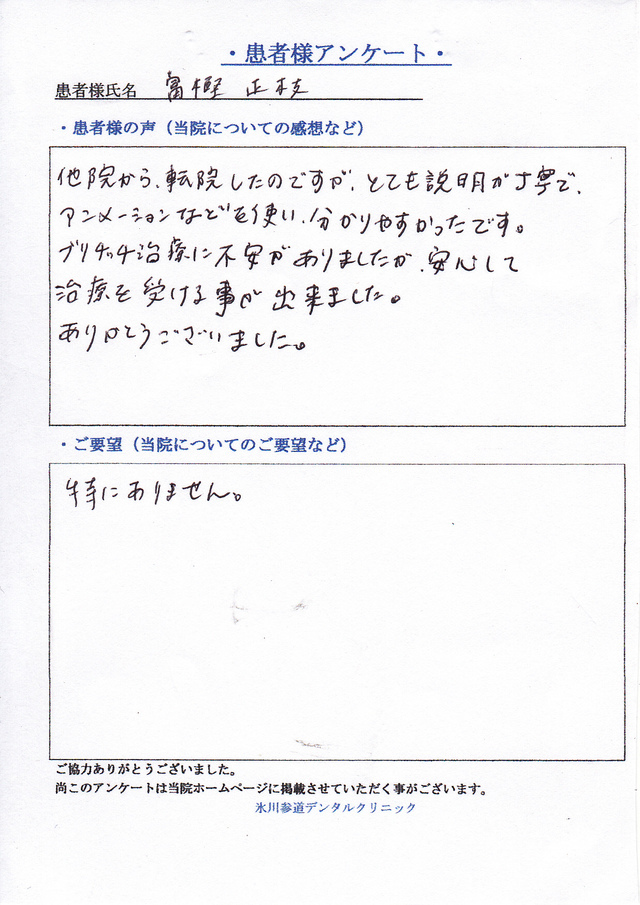 ・患者様アンケート・
患者様氏名 富樫 正枝
・患者様の声（当院についての感想など）
他院から、転院したのですが、とても説明が丁寧で、
アンメーションなどを使い、分かりやすかったです。
ブリッチ治療に不安がありましたが、安心して
治療を受ける事が出来ました。
ありがとうございました。
・ご要望（当院についてのご要望など）
特にありません。
ご協力ありがとうございました。
尚このアンケートは当院ホームページに掲載させていただく事がございます。
氷川参道デンタルクリニック